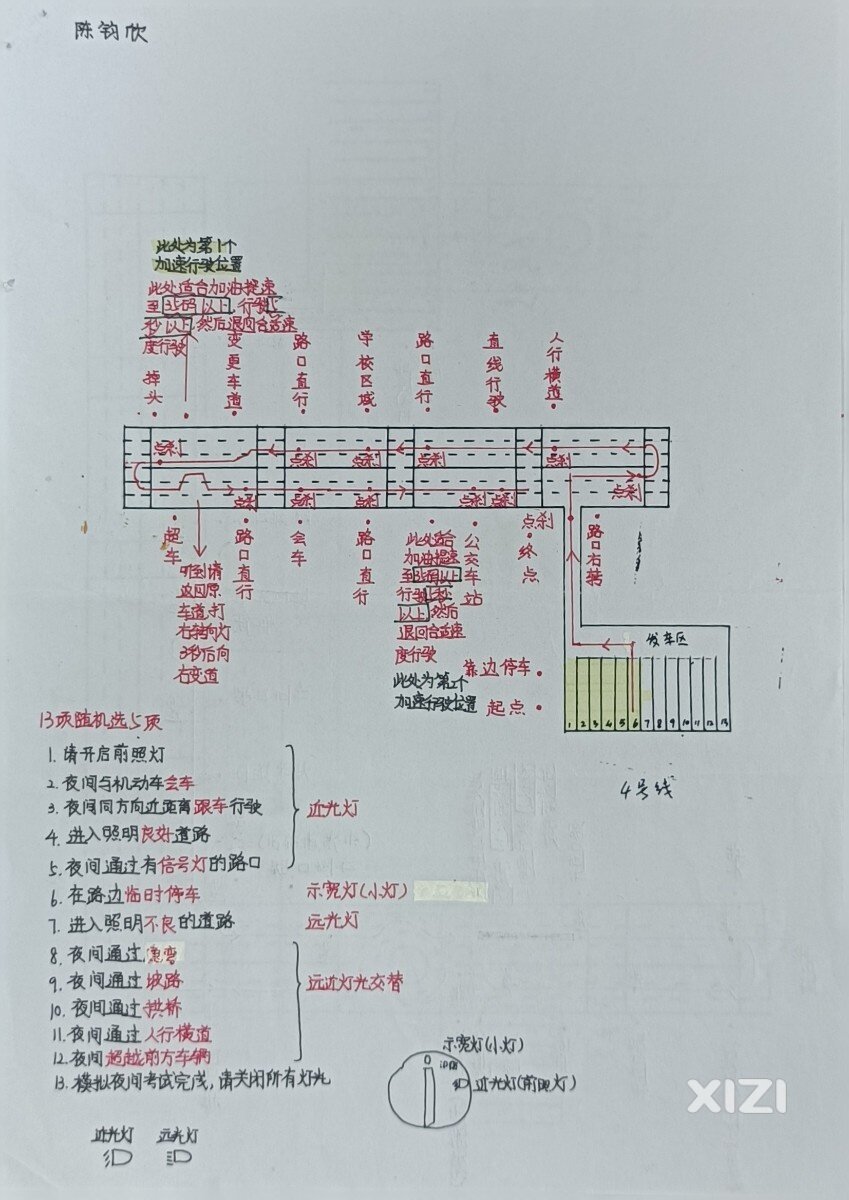 陈钧欣
此处为第1个
加速行驶位置
此处适合加油提速
至35码以上,行驶5
秒以上,然后退回合适速
度行驶
掉头
变更车道
路口直行
学校区域
路口直行
直线行驶
人行横道
点刹
点刹
点刹
点刹
点刹
点刹
点刹
点刹
点刹
点刹
点刹
超车
听到请
返回原
车道,打
右转向灯
3秒后向
右变道
路口直行
会车
路口直行
此处适合
加油提速
至35码以上
行驶5秒
以上,然后
退回合适速
度行驶
此处为第2个
加速行驶位置
公交车站
终点
路口右转
靠边停车
起点
发车区
1 2 3 4 5 6 7 8 9 10 11 12 13
4号线
13项随机选5项
1. 请开启前照灯
2. 夜间与机动车会车
3. 夜间同方向近距离跟车行驶
4. 进入照明良好道路
5. 夜间通过有信号灯的路口
近光灯
6. 在路边临时停车 示宽灯(小灯)
7. 进入照明不良的道路 远光灯
8. 夜间通过急弯
9. 夜间通过坡路
10. 夜间通过拱桥
11. 夜间通过人行横道
12. 夜间超越前方车辆
远近灯光交替
13. 模拟夜间考试完成,请关闭所有灯光
示宽灯(小灯)
0
近光灯(前照灯)
近光灯 远光灯
XIZI